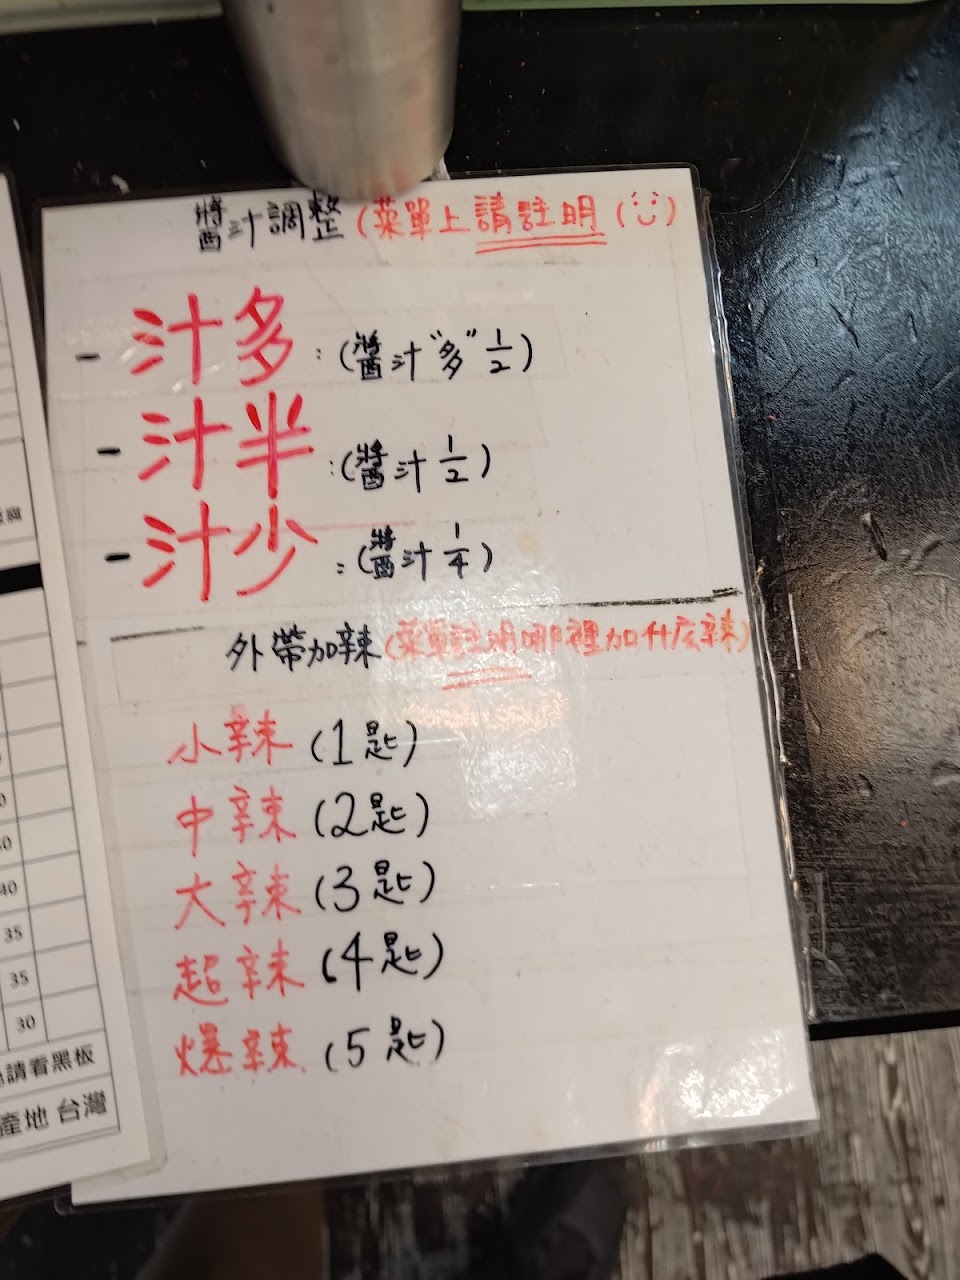 醬汁調整(菜單上請註明(:)
- 汁多:(醬汁"多"1/2)
- 汁半:(醬汁1/2)
- 汁少:(醬汁1/4)
外帶加辣(菜單註明哪裡加什広辣)
小辣(1匙)
中辣(2匙)
大辣(3匙)
超辣(4匙)
爆辣(5匙)
40
35
35
30
請看黑板
產地 台灣